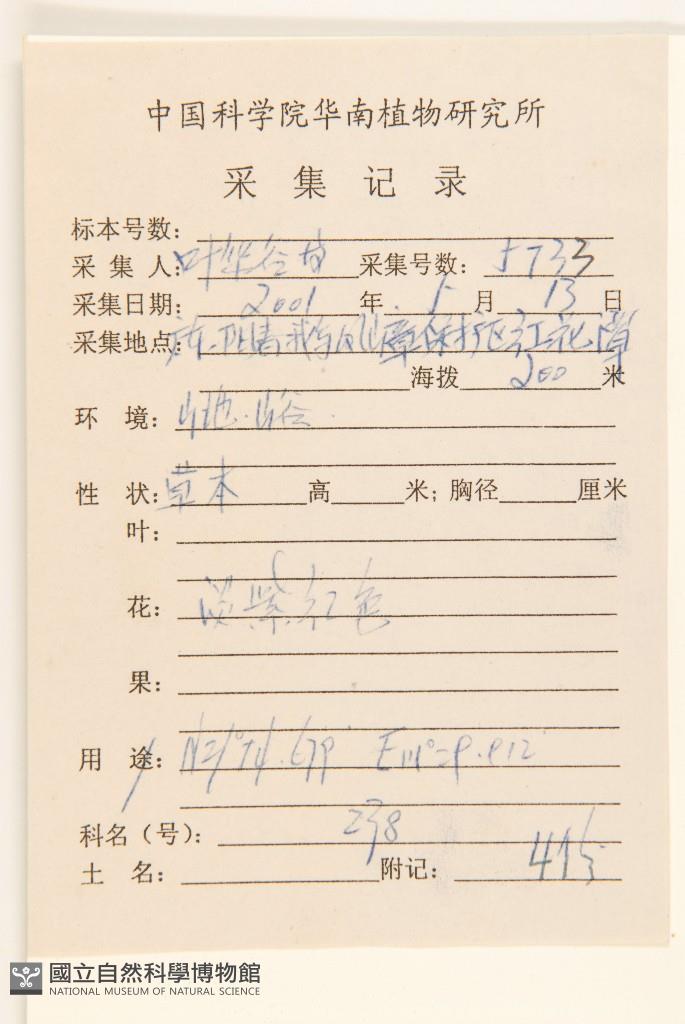 中国科学院华南植物研究所
采集记录
标本号数：
采集人：叶华谷 采集号数：5733
采集日期：2001年5月13日
采集地点：保护区
海拨200米
环境：山地.山谷.
性状：草本 高 米；胸径 厘米
叶：
花：淡紫红色
果：
用途：
科名（号）：238
土名： 附记：
國立自然科學博物館
NATIONAL MUSEUM OF NATURAL SCIENCE